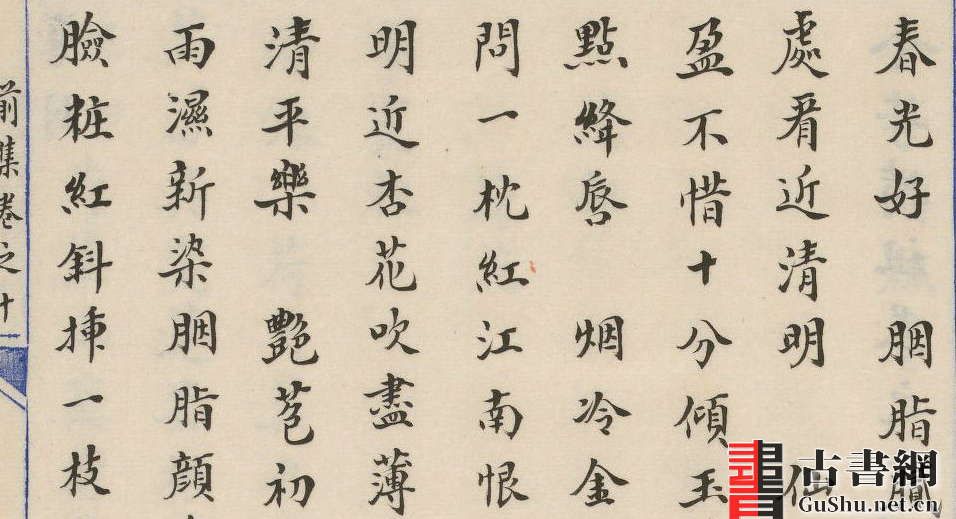 春光好 胭脂膩
處看近清明 仙
盈不惜十分傾玉
點絳唇 烟冷金
問一枕紅江南恨
明近杏花吹盡薄
清平樂 艷苞初
雨濕新染胭脂顔
臉粧紅斜揷一枝
前集卷之十
古書網
GuShu.net.cn